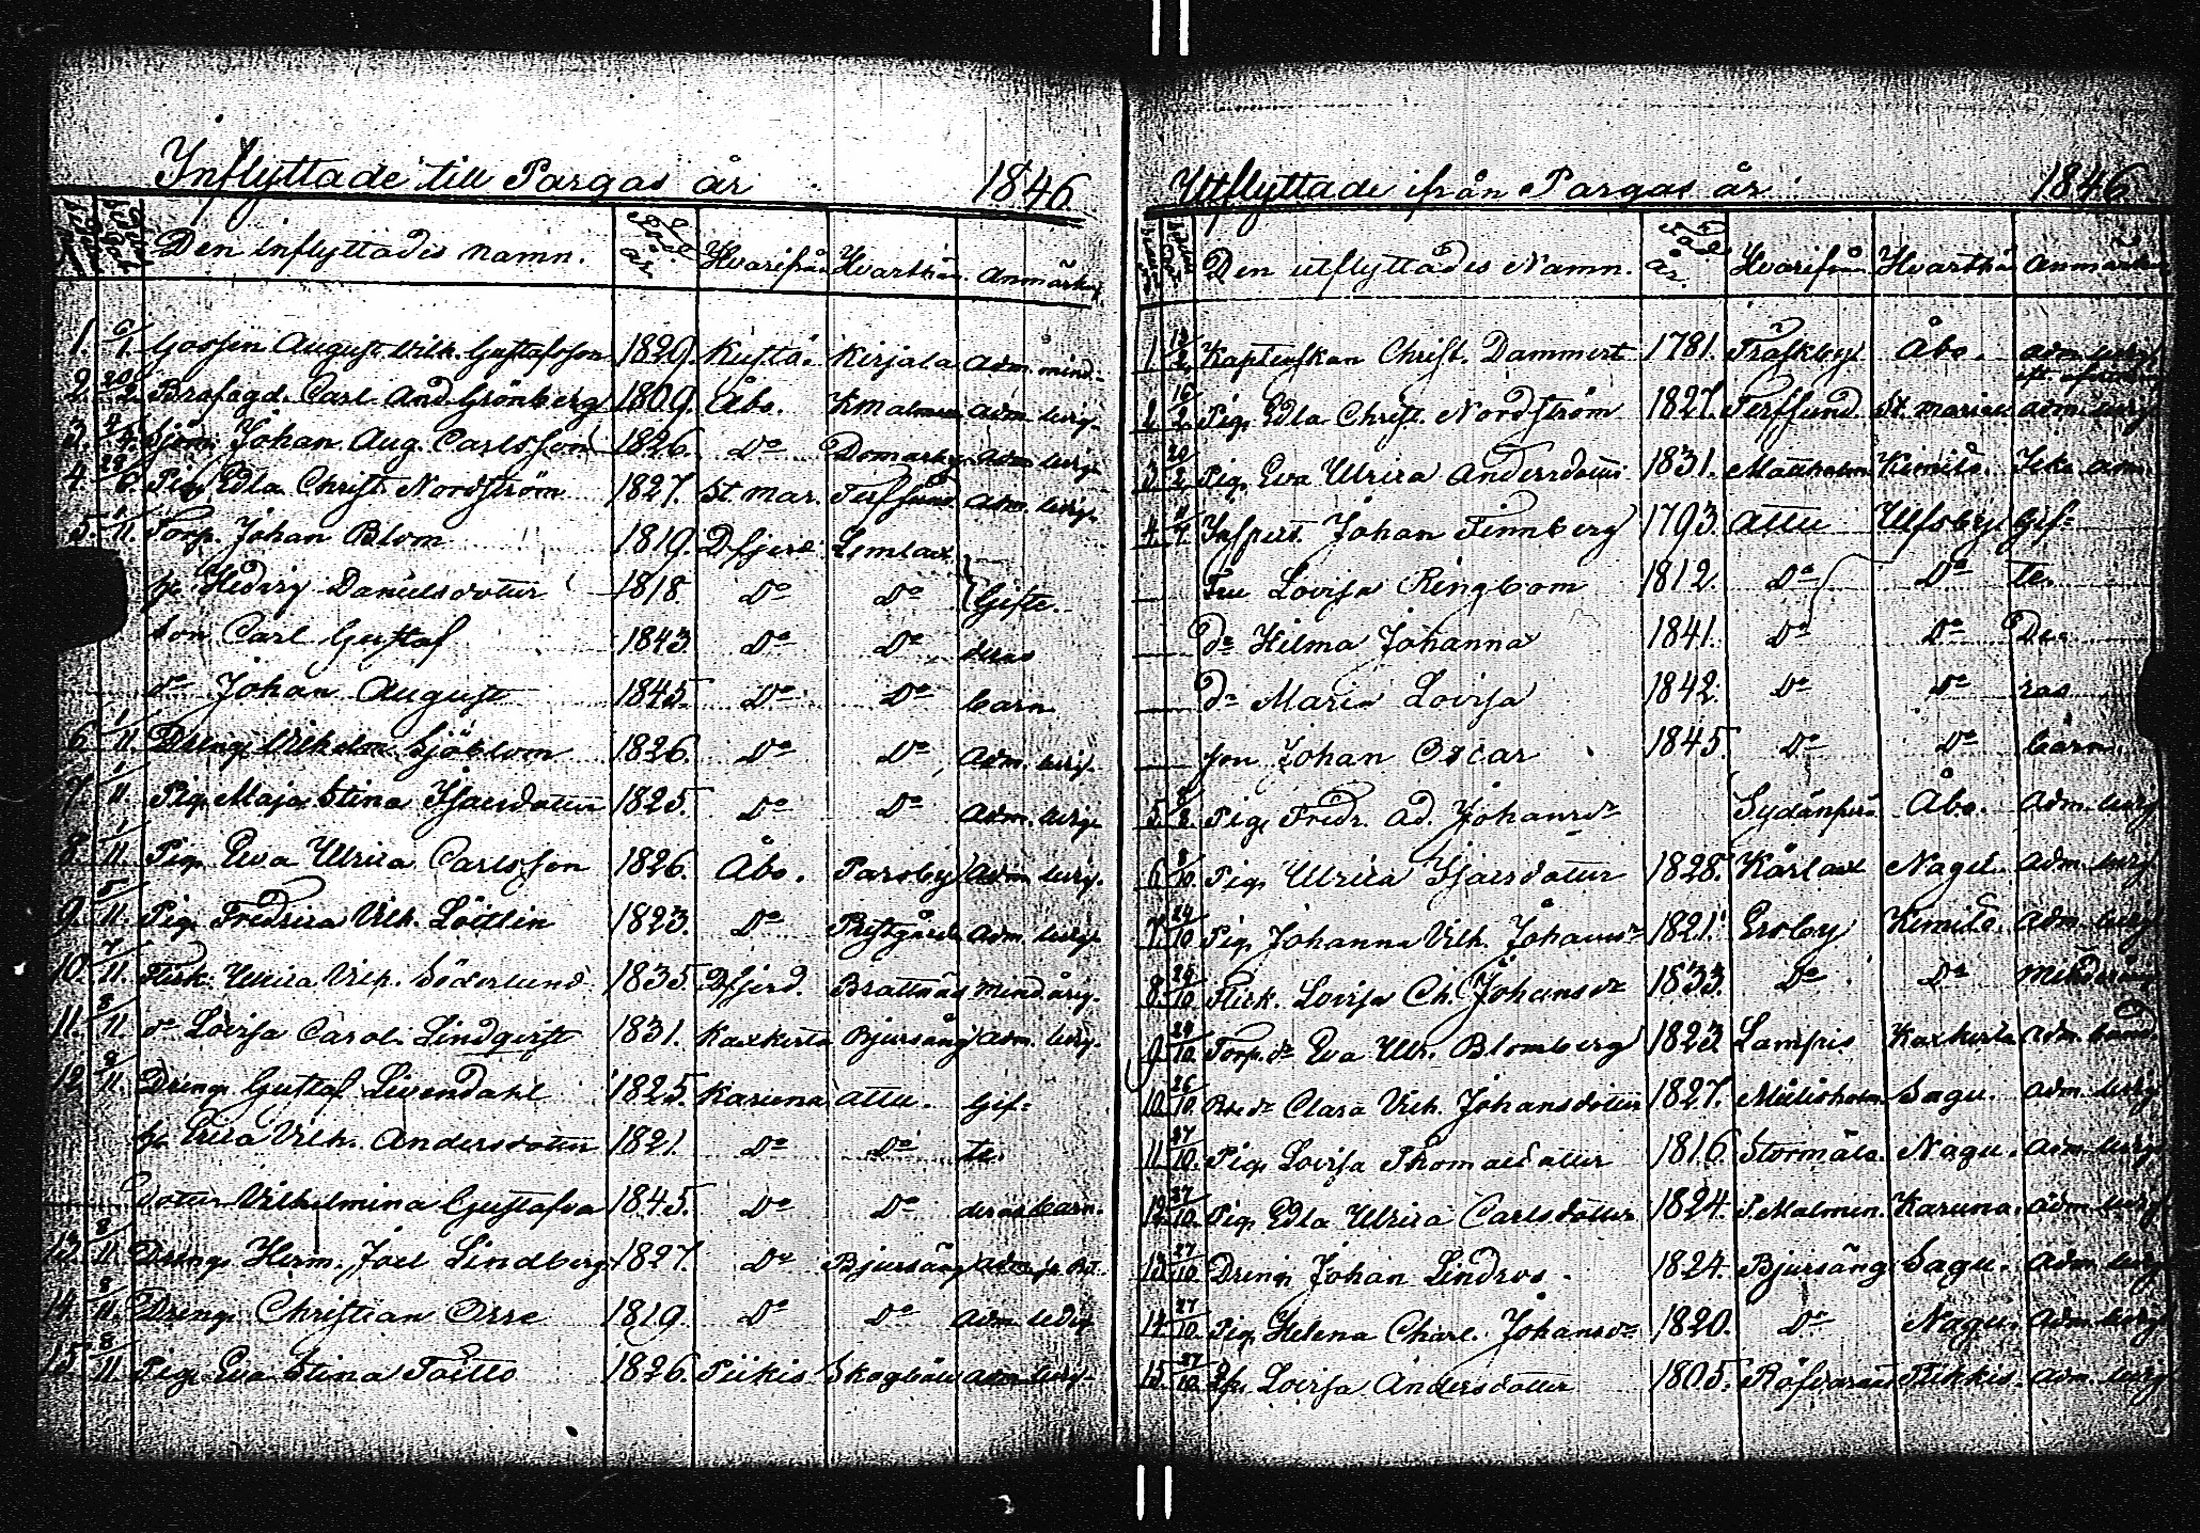 Inflyttade till Pargas år 1846.
Den inflyttades namn. Född år. Hvarifrån Hvarthän. Anmärkn.
1. 6/1 Gossen August Vilh. Gustafsson 1829. Kustö. Kirjala Adm. mind.
2. 20/2 Carl And. Grönberg 1809. Åbo. Kmalmen Adm. ledig.
3. Sjöm. Johan Aug. Carlsson 1826. Do Domarby Adm. ledig.
4. 28/6. Pig. Edla Christ. Nordström 1827. St. Mar. Terfsund Adm. ledig.
5. 1/11. Torp. Johan Blom 1819. Dfjerd. Lemlax
h. Hedvig Danielsdotter 1818. Do Do Gifte.
son Carl Gustaf 1843. Do Do deras
do Johan August 1845. Do Do barn
6. 1/11. Dreng. Vilhelm Sjöblom 1826. Do Do Adm. ledig.
7. 1/11. Pig. Maja Stina Isacsdotter 1825. Do Do Adm. ledig.
8. 1/11. Pig. Eva Ulrica Carlsson 1826. Åbo. Parsby Adm. ledig.
9. 5/11. Pig. Fredrica Vilh. Löttlin 1823. Do Prestgården Adm. ledig.
10. 7/11. Flick. Ulrica Vilh. Söderlund 1835. Dfjerd. Brattnäs Mindårig.
11. 8/11 do Lovisa Carol. Lindqvist 1831. Kaxkerta Bjursäng Adm. ledig.
12. 8/11. Dreng. Gustaf Livendahl 1825. Karuna Attu. Gif-
h. Erica Vilh. Andersdotter 1821. Do Do te.
dotter Vilhelmina Gustafva 1845. Do Do deras barn.
13. 8/11. Dreng. Herm. Joel Lindberg 1827. Do Bjursäng
14. 8/11. Dreng. Christian Orre 1819. Do Do Adm. ledig
15. 8/11. Pig. Eva Stina Toitto 1826. Piikis Skogböle Adm. ledig.
Utflyttade ifrån Pargas år 1846
Den utflyttades Namn. Född år. Hvarifrån Hvarthän Anmärkn
1. Kaptenskan Christ. Dammert 1781. Träskby Åbo. Adm. ledig
2. 16/2 Pig. Edla Christ. Nordström 1827. Terfsund. St. Mariae Adm. ledig.
3. 20/2 Pig. Eva Ulrica Andersdotter 1831. Mattholm Kimito. Icke adm.
4. Inspect. Johan Finnberg 1793. Attu Ulfsby. Gif-
Fru Lovisa Ringbom 1812. Do Do te.
do Hilma Johanna 1841. Do Do De-
do Maria Lovisa 1842. Do Do ras
son Johan Oscar 1845. Do Do barn.
5. Pig. Fredr. Ad. Johansdr Sydänperä Åbo. Adm. ledig
6. 8/10. Pig. Ulrica Isacsdotter 1828. Kårlax Nagu. Adm. ledig.
7. 24/10 Pig. Johanna Vilh. Johansdr 1821. Ersby Kimito. Adm. ledig
8. 24/10. Flick. Lovisa Ch. Johansdr 1833. Do Do Mindårig
9. 24/10. Torp. dr Eva Ulr. Blomberg 1823. Lampis Kaxkerta
10. 26/10. Clara Vilh. Johansdotter 1827. Mielisholm Sagu. Adm. ledig
11. 27/10. Pig. Lovisa Thomasdotter 1816. Stormälö. Nagu. Adm. ledig
12. 27/10. Pig. Edla Ulrica Carlsdotter 1824. Karuna. Adm. ledig
13. 27/10. Dreng. Johan Lindros. 1824. Bjursäng Sagu. Adm. ledig
14. 27/10. Pig. Helena Charl. Johansdr 1820. Do Nagu. Adm. ledig
15. 27/10. Lovisa Andersdotter 1805. Adm. ledig